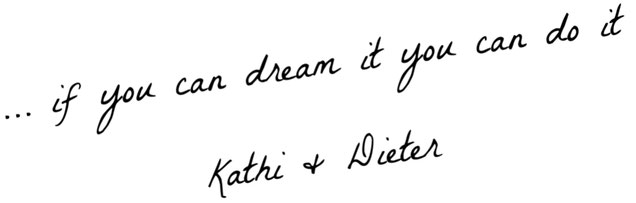 ... if you can dream it you can do it
Kathi & Dieter